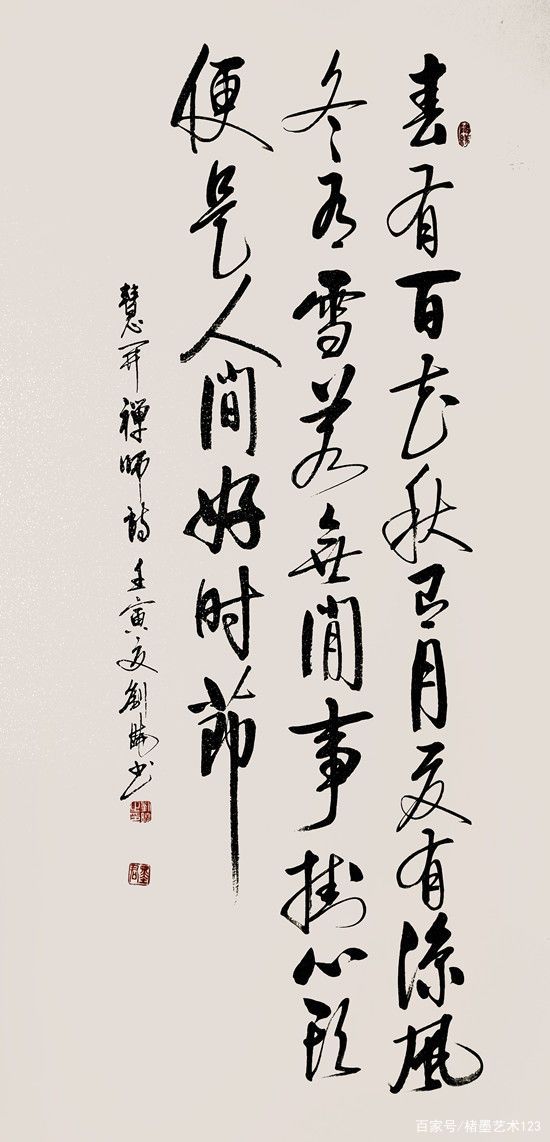 春有百花秋有月夏有涼風
冬有雪若無閒事掛心頭
便是人間好时節
慧開禪師詩壬寅夏劉曉书
百家号/楮墨艺术123